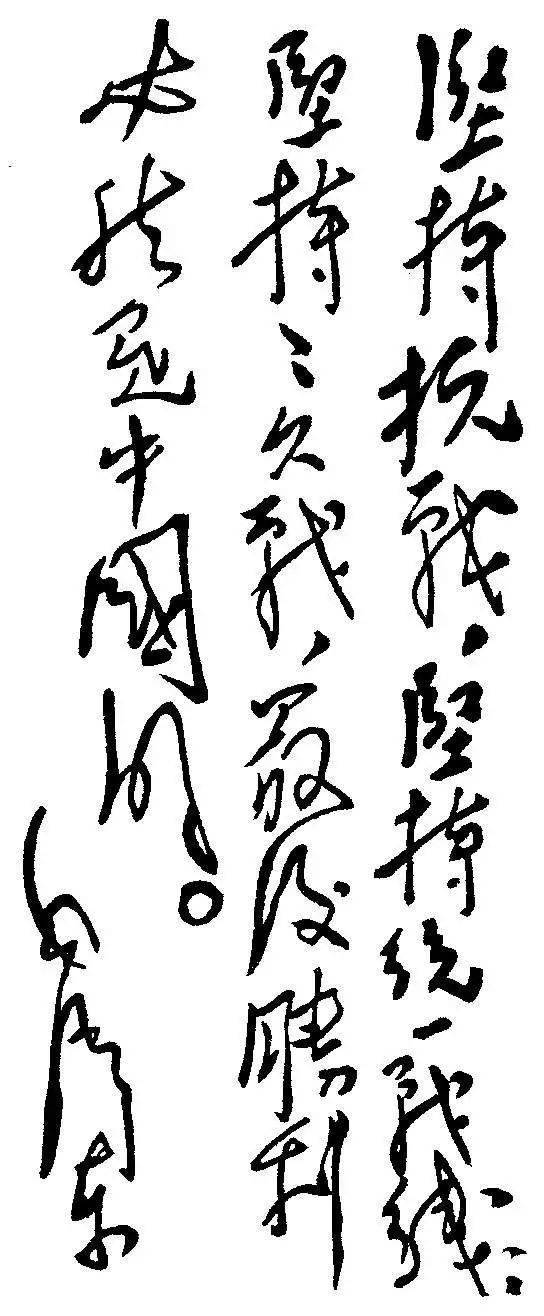 堅持抗战，堅持統一战綫，
堅持〻久战，最後勝利
必然是中國的。
毛澤东